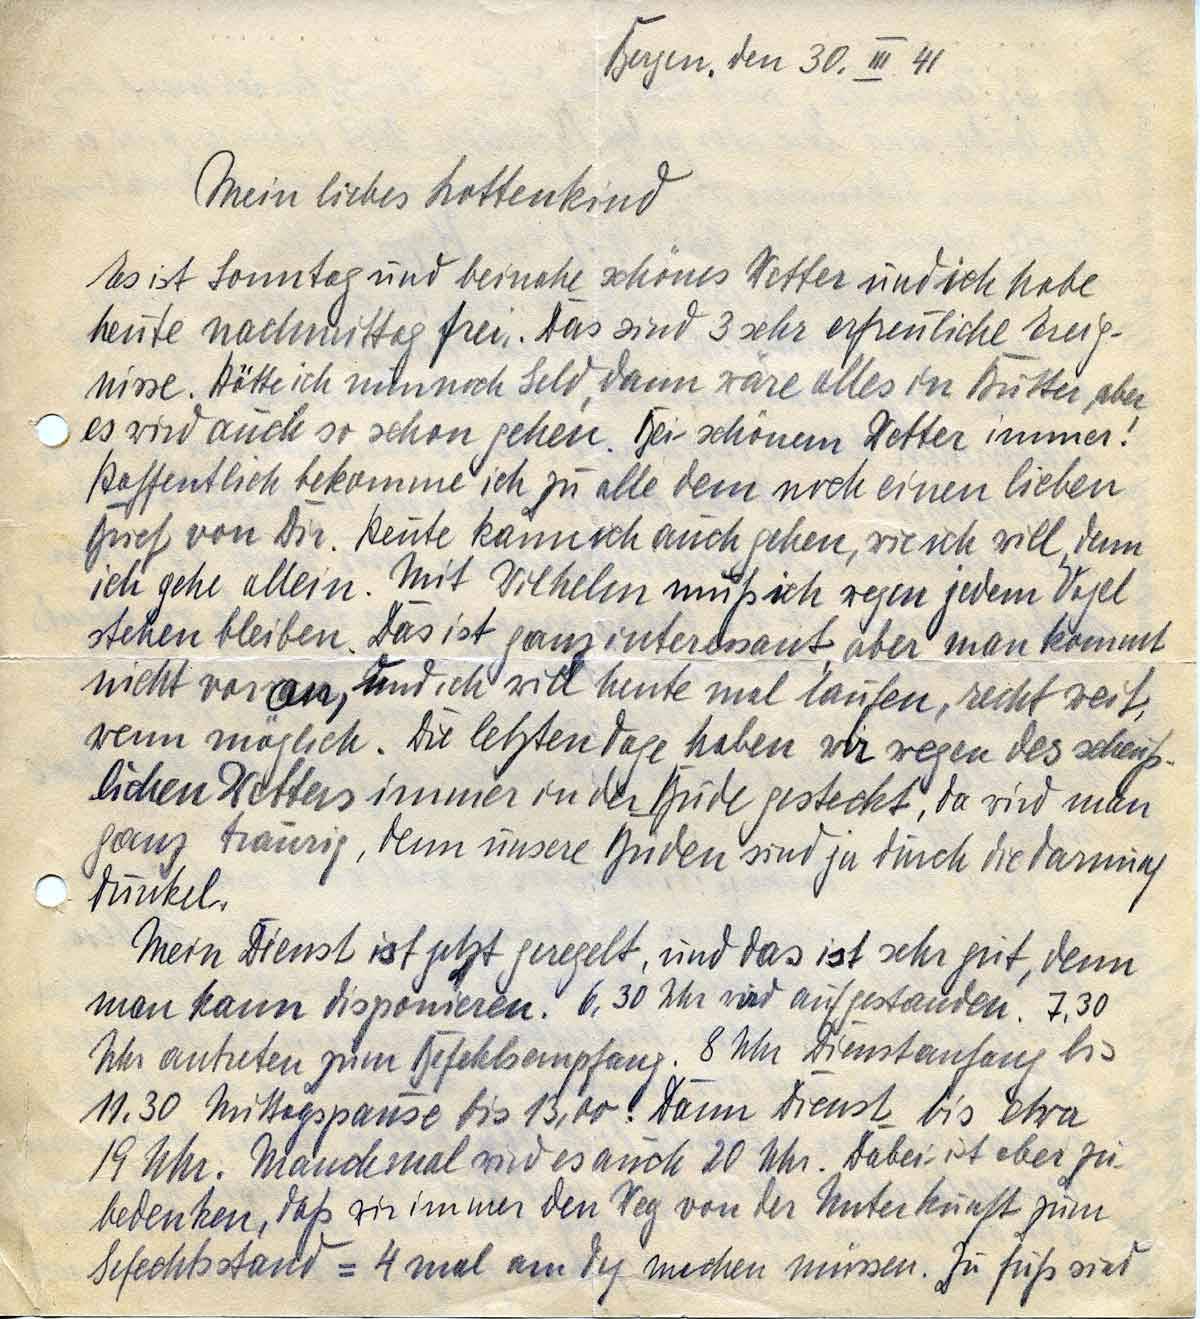 Bergen, den 30. III 41
Mein liebes Lottenkind
Es ist Sonntag und beinahe schönes Wetter und ich habe
heute nachmittag frei. Das sind 3 sehr erfreuliche Ereig-
nisse. Hätte ich nun noch Geld, dann wäre alles in Butter, aber
es wird auch so schon gehen. Bei schönem Wetter immer!
Hoffentlich bekomme ich zu alle dem noch einen lieben
Brief von Dir. Heute kann ich auch gehen, wie ich will, denn
ich gehe allein. Mit Wilhelm muß ich wegen jedem Vogel
stehen bleiben. Das ist ganz interessant, aber man kommt
nicht voran, und ich will heute mal laufen, recht weit,
wenn möglich. Die letzten Tage haben wir wegen des scheuß-
lichen Wetters immer in der Bude gesteckt, da wird man
ganz traurig, denn unsere Buden sind ja durch die
dunkel.
Mein Dienst ist jetzt geregelt, und das ist sehr gut, denn
man kann disponieren. 6,30 Uhr wird aufgestanden. 7,30
Uhr antreten zum Befehlsempfang. 8 Uhr Dienstanfang bis
11.30 Mittagspause bis 13,00. Dann Dienst bis etwa
19 Uhr. Manchmal wird es auch 20 Uhr. Dabei ist aber zu
bedenken, daß wir immer den Weg von der Unterkunft zum
Gefechtsstand = 4 mal am Tag machen müssen. Zu fuß sind